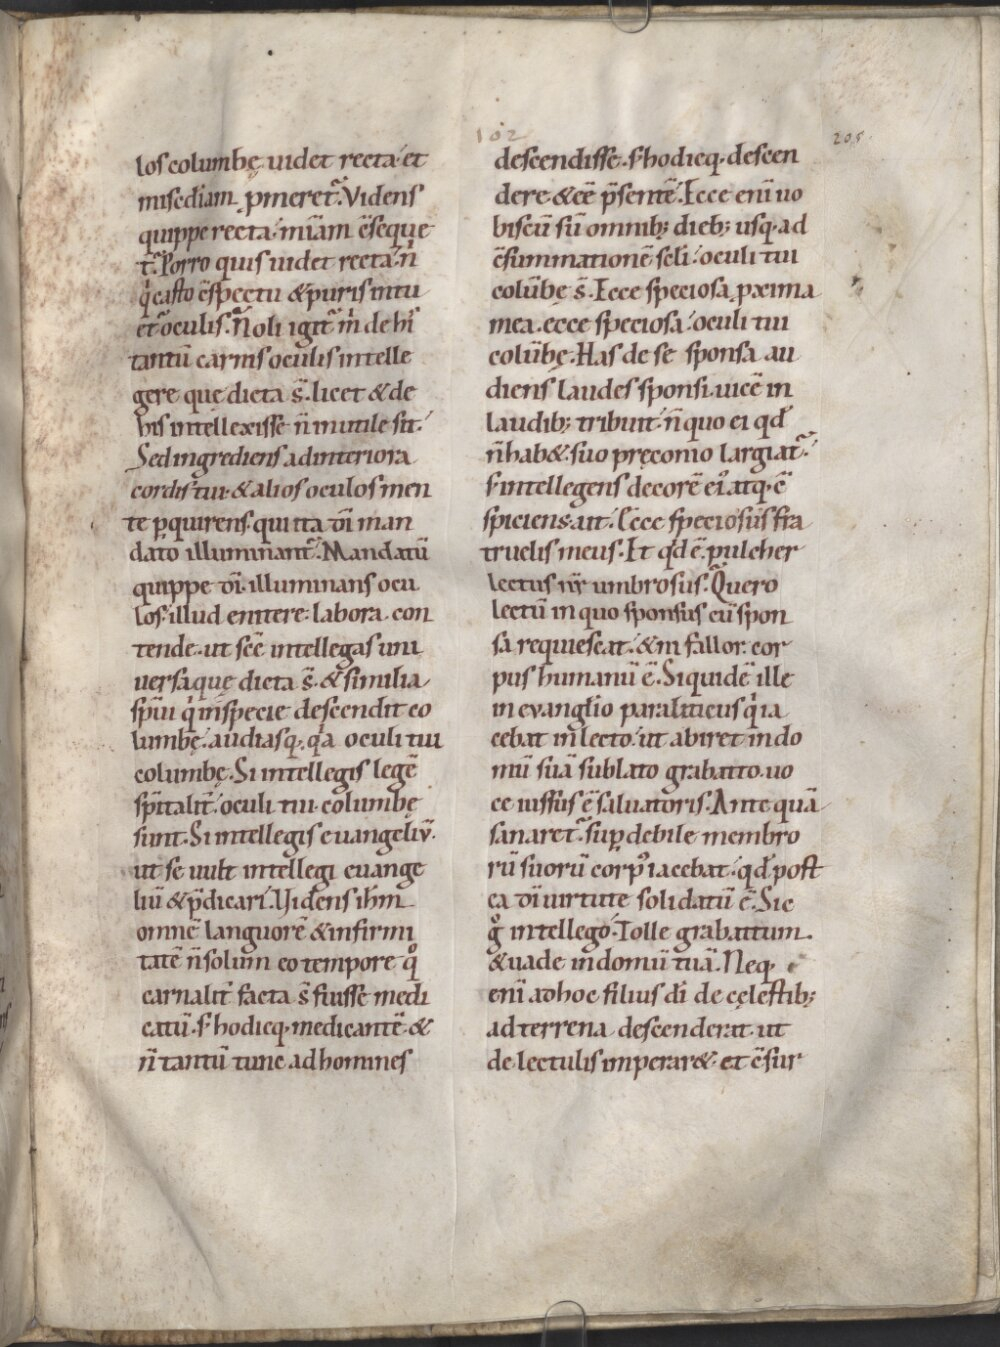 102
205
los columbę uidet recta· et
misediam p̱meret᷒. Videns
quippe recta· miam̄ c̄seque
t᷒. Porro quis uidet recta· ñ
qͥ casto c̄spectu & puris intu
et᷒ oculis. Ñoli igit᷒ m̄ de hi᷒
tantū carnis oculis intelle
gere quę dicta s̄. licet & de
his intellexisse n̄ inutile sit.
Sed ingrediens ad interiora
cordis tui· & alios oculos men
te p̱quirens· qui ita di̅ man
dato illuminant᷒. Mandatū
quippe di̅· illuminans ocu
los· illud enitere· labora· con
tende· ut sc̄e intellegas uni
uersa quę dicta s̄· & similia
sp̄iu qͥ in specie descendit co
lumbę· audiasq;· qͥa oculi tui
columbę. Si intellegis legē
sp̄italit᷒· oculi tui· columbę
sunt. Si intellegis euangeliū·
ut se uult intellegi euange
liū & p̄dicari. Videns ih̄m
omnē languorē & infirmi
tatē n̄ solum eo tempore qͦ
carnalit᷒ facta s̄ fuisse medi
catū· s; hodieq;· medicantē· &
n̄ tantū tunc ad homines
descendisse· s; hodieq;· descen
dere· & c̄e p̄sentē. Ecce eni̅ uo
biscū sū omnib; dieb; usq; ad
c̄summationē sc̄li· oculi tui
colūbę s̄. Ecce speciosa p̱xima
mea· ecce speciosa· oculi tui
colūbę. Has de se sponsa au
diens laudes sponsi· uicē in
laudib; tribuit· n̄ quo ei qd̄
n̄ hab& suo pręconio largiat᷒·
s; intellegens decorē ei᷒ atq; c̄
spiciens· ait. Ecce speciosus fra
truelis meus. Et qd̄ ē· pulcher
lectus nr̄ umbrosus. Quero
lectū in quo sponsus cū spon
sa requiescat· & ni fallor· cor
pus humanū ē. Siquidē ille
in evanglio paraliticus qͥ ia
cebat in lecto· ut abiret in do
mū suā sublato grabatto· uo
ce iussus ē saluatoris. Ante quā
sanaret᷒· sup̱ debile membro
rū suorū corp᷒ iacebat· qd̄ post
ea di̅ uirtute solidatū ē. Sic
gͦ intellego· Tolle grabattum·
& uade in domū tuā. Neq;
eni̅ ad hoc filius di̅ de cęlestib;
ad terrena descenderat· ut
de lectulis imperar& et c̄sur